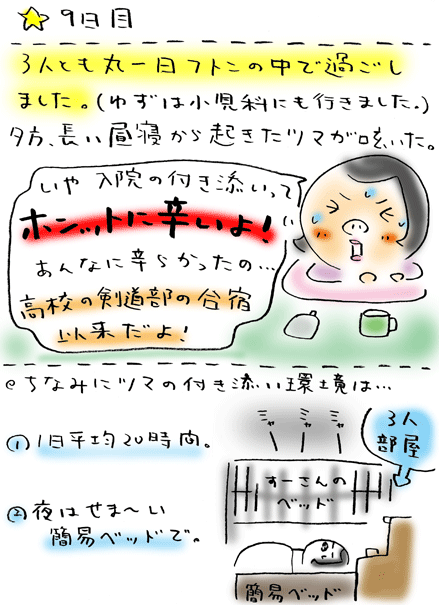 9日目
3人とも丸一日フトンの中で過ごし
ました。(ゆずは小児科にも行きました。)
夕方、長い昼寝から起きたツマが呟いた。
いや 入院の付き添いって
ホンットに辛いよ!
あんなに辛らかったの…
高校の剣道部の合宿
以来だよ!
ちなみにツマの付き添い環境は…
① 1日平均20時間。
② 夜はせま〜い
簡易ベッドで。
ミャ ミャ ミャ
3人
部屋
すーさんの
ベッド
簡易ベッド